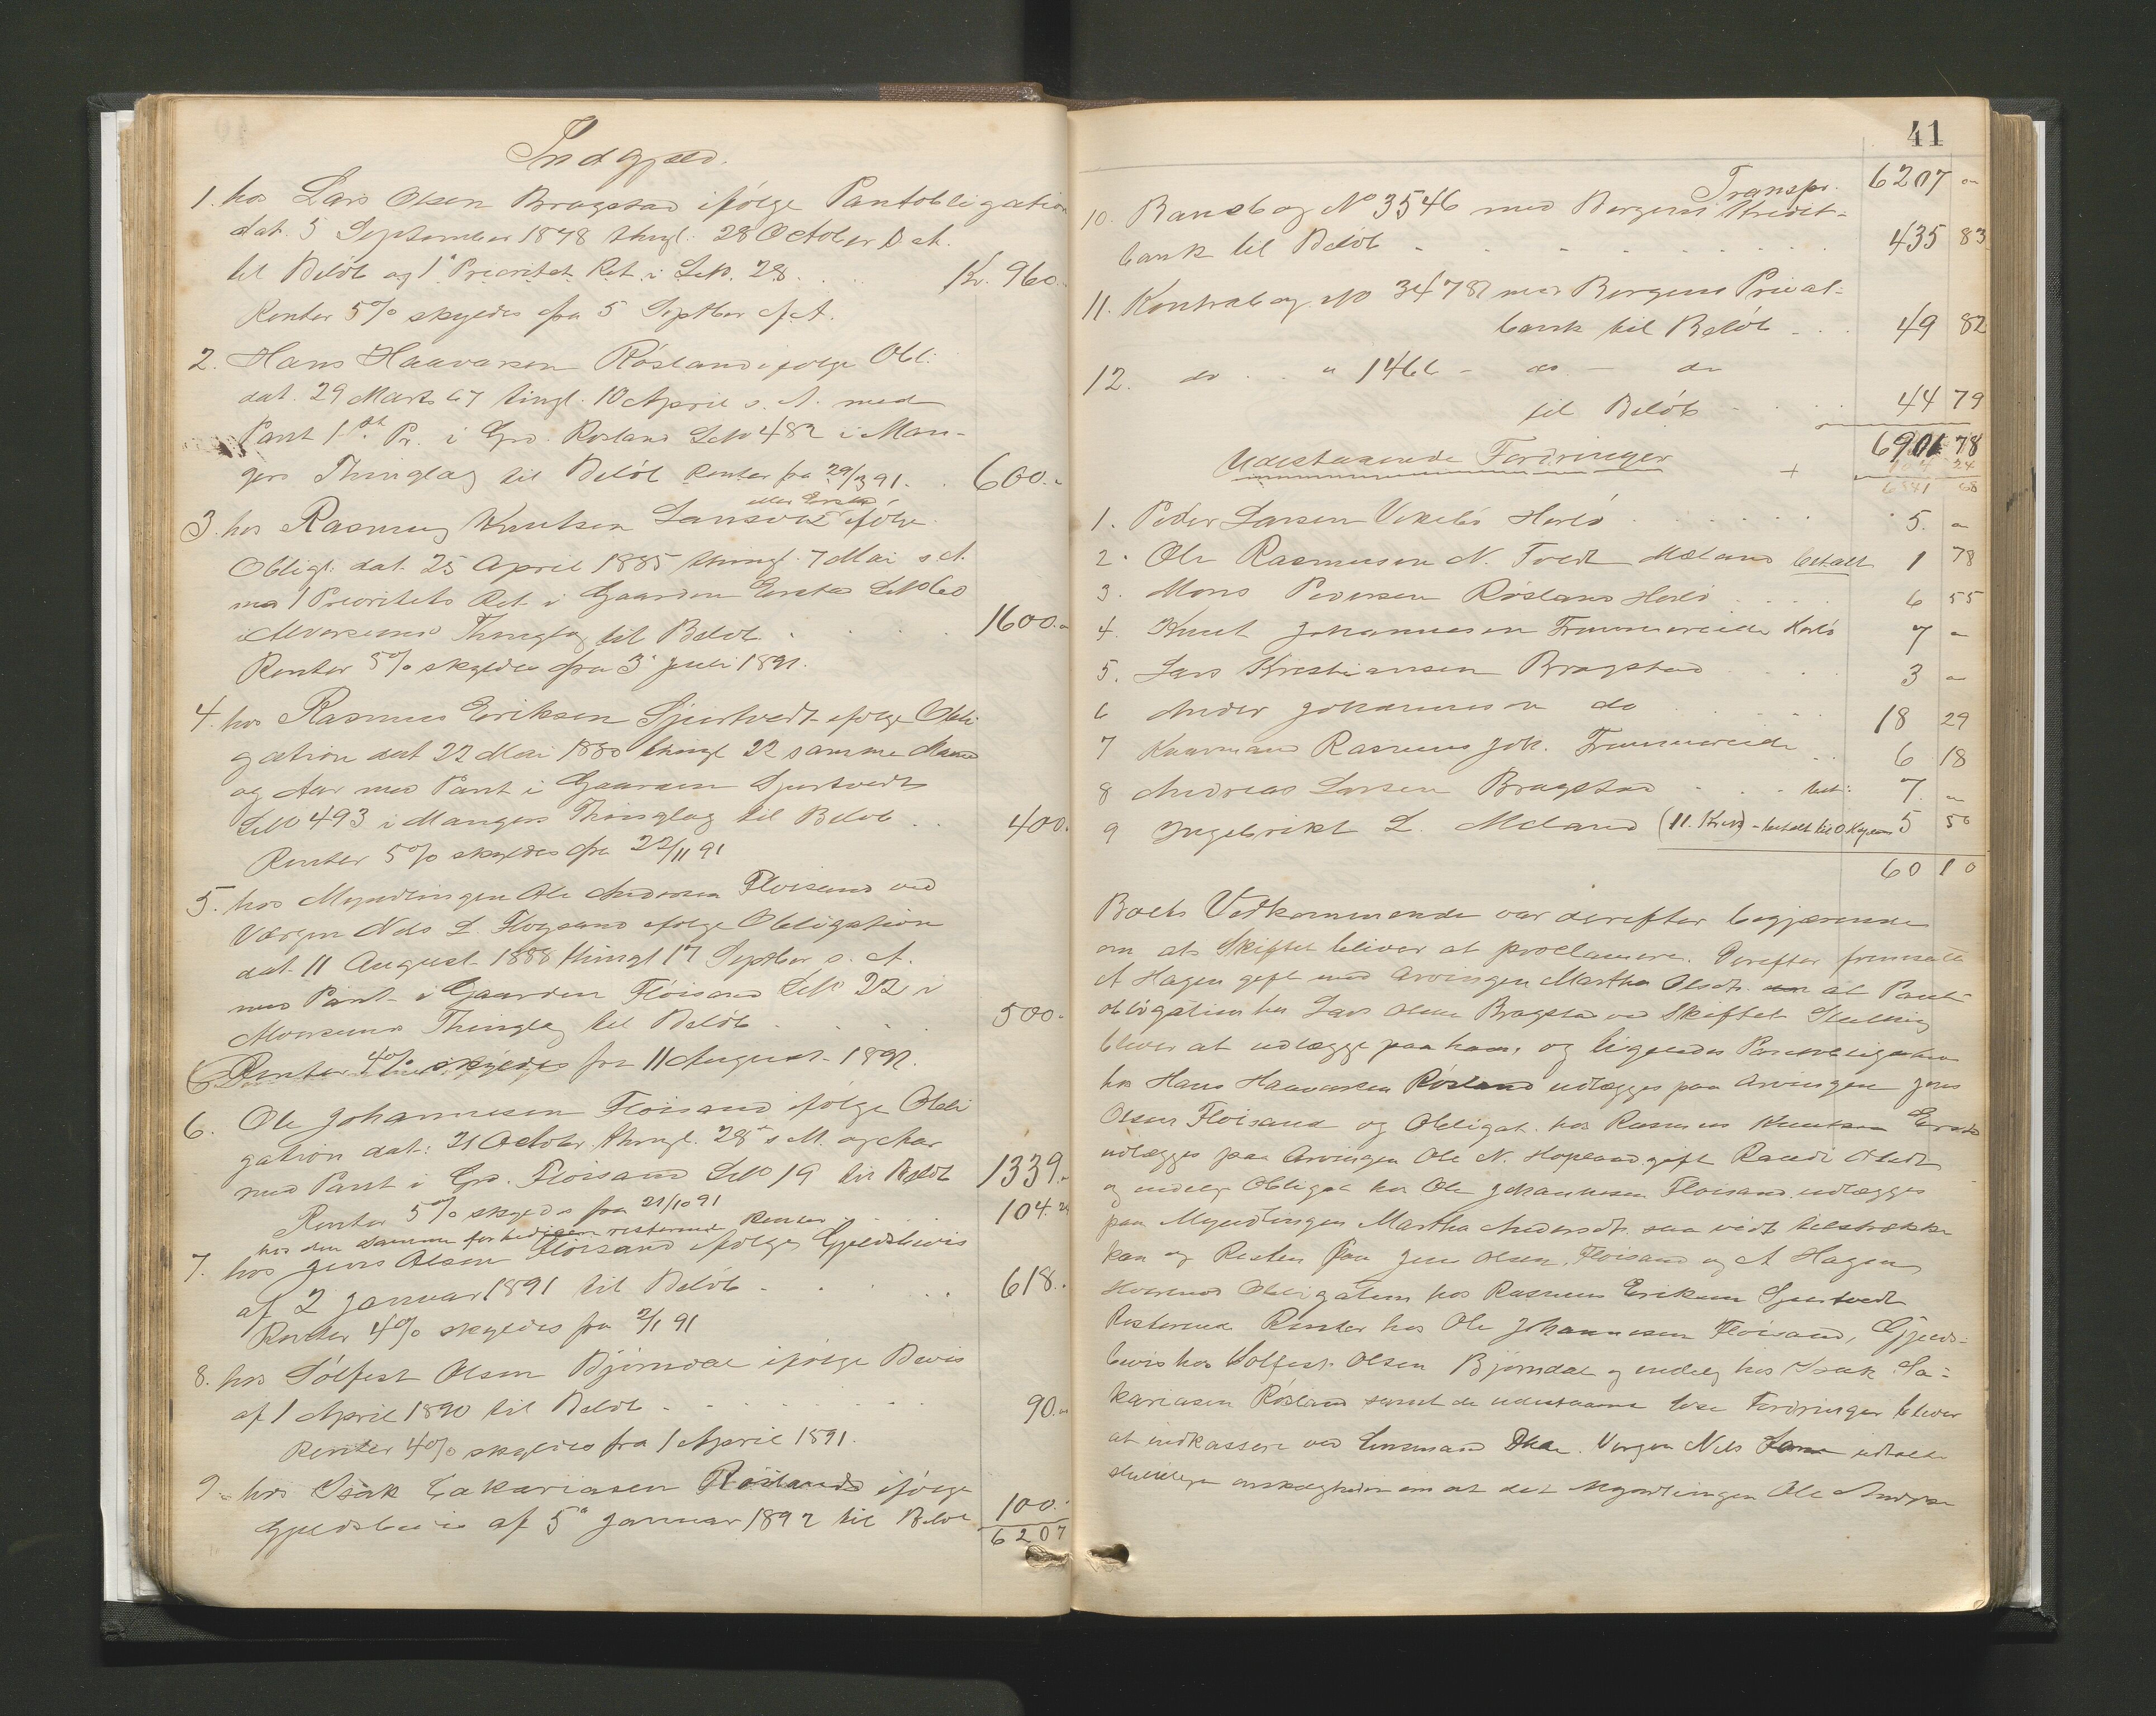 Indgjæld.
1. hos Lars Olsen Bragstad ifølge Pantobligation
dat. 5 September 1878 thngl. 28 October D. A.
til Beløb og 1ste Prioritet Ret i LNo. 28 . . Kr. 960..
Renter 5% skyldes fra 5 Septbr f. A.
2. Hans Haavarsen Røsland ifølge Obl:
dat. 29 Marts 67 tingl. 10 April s. A. med
Pant 1ste Pr. i Grd. Rosland LNo 482 i Man-
gers Thinglag til Beløb Renter fra 29/3 91. . 600..
eller Erstad
3. hos Rasmus Knutsen ifølge
Obligt. dat. 25 April 1885 thingl. 7 Mai s. A.
med 1 Prioritets Ret i Gaarden Erstad LNo 60
i Alversunds Thinglag til Beløb . . . . 1600..
Renter 5% skyldes fra 3 Juli 1891.
4. hos Rasmus Eriksen Sjurtvedt ifølge Obli
gation dat 22 Mai 1880 thingl 22 samme Maaned
og Aar med Pant i Gaarden Sjurtvedt
LNo 493 i Mangers Thinglag til Beløb . . 400.
Renter 5% skyldes fra 22/11 91
5. hos Myndlingen Ole Andersen Floisand ved
Værgen Nels L. Floysand ifølge Obligation
dat. 11 August 1888 thingl 17 Septbr s. A.
med Pant i Gaarden Fløisand LNo 22 i
Alversunds Thinglag til Beløb . . . . 500.
Renter 4% skyldes fra 11 August 1891.
6. Ole Johannesen Fløisand ifølge Obli
gation dat: 21 Octobr thngl. 28de s. M. og Aar
med Pant i Grd. Floisand LNo 19 til Beløb 1339..
Renter 5% skyldes fra 21/10 91
hos den samme resterende Renter . 104. 24
7. hos Jens Olsen Floisand ifølge Gjeldsbevis
af 2 Januar 1891 til Beløb . . . . 618..
Renter 4% skyldes fra 2/1 91
8. hos Sølfest Olsen Bjørndal ifølge Bevis
af 1 April 1890 til Beløb . . . . . 90..
Renter 4% skyldes fra 1 April 1891.
9. hos Isak Zakariasen Røsland ifølge
Gjeldsbevis af 5te Januar 1892 til Beløb 100.
6207
41
Transpr. 6207 "
10. Bankbog No 3546 med Bergens Kredit-
bank til Beløb . . . . . . 435 83
11. Kontrabog No 34781 med Bergens Privat-
bank til Beløb . . . 49 82
12. do . " 1466 - do - do
til Beløb . . . . 44 79
6901 78
Udestaaende Fordringer +
1. Peder Larsen Herlø . . . . . 5. "
2. Ole Rasmussen N. Tvedt Mæland betalt 1 78
3. Mons Pedersen Røsland Herlø . . . . 6 55
4. Knut Johannesen Frommereide Herlø 7 "
5. Lars Kristiansen Bragstad . . . . 3 "
6 Anders Johannesen do . . . . . 18 29
7 Rasmus Joh. Frommereide . . 6 18
8 Andreas Larsen Bragstad . . . bet: 7. "
9 Ingebrikt L. Meland 5 50
60 10
Boets Vedkommende var derefter begjærende
om at Skiftet bliver at proclamere. Derefter fremsatte
A Hagen gift med Arvingen Martha Olsdtr. at Pant-
obligation hos Lars Olsen Bragstad ved Skiftets Slutning
bliver at udlægge paa ham, og ligesaa Pantobligation
hos Hans Haavarsen Røsland udlægges paa Arvingen Jens
Olsen Floisand og Obligat. hos Rasmus Knutsen Erstad
udlægges paa Arvingen Ole N. Hopland gift Randi Olsdtr
og endelig Obligat hos Ole Johannesen Floisand udlægges
paa Myndlingen Martha Andersdtr. saa vidt tilstrække
kan og Resten paa Jens Olsen Floisand og A Hagen
Hvorimod Obligation hos Rasmus Eriksen Sjurtvedt
Resterende Renter hos Ole Johannesen Floisand, Gjelds-
bevis hos Solfest Olsen Bjørndal og endelig hos Isak Sa-
kariasen Røsland samt de udestaaende løse Fordringer bliver
at indkassere ved Lensmand Værgen Nils udtalte
om at det Myndlingen Ole Anders